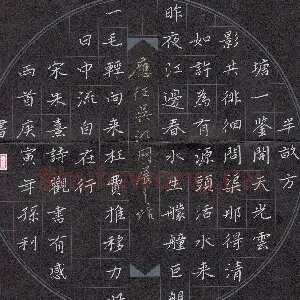 半畝方
塘一鑒開天光雲
影共徘徊問渠那得清
如許為有源頭活水来
昨夜江邊春水生艨艟巨
一毛輕向来枉費推移力
日中流自在行
宋朱熹詩觀書有感
兩首庚寅年孫利
書